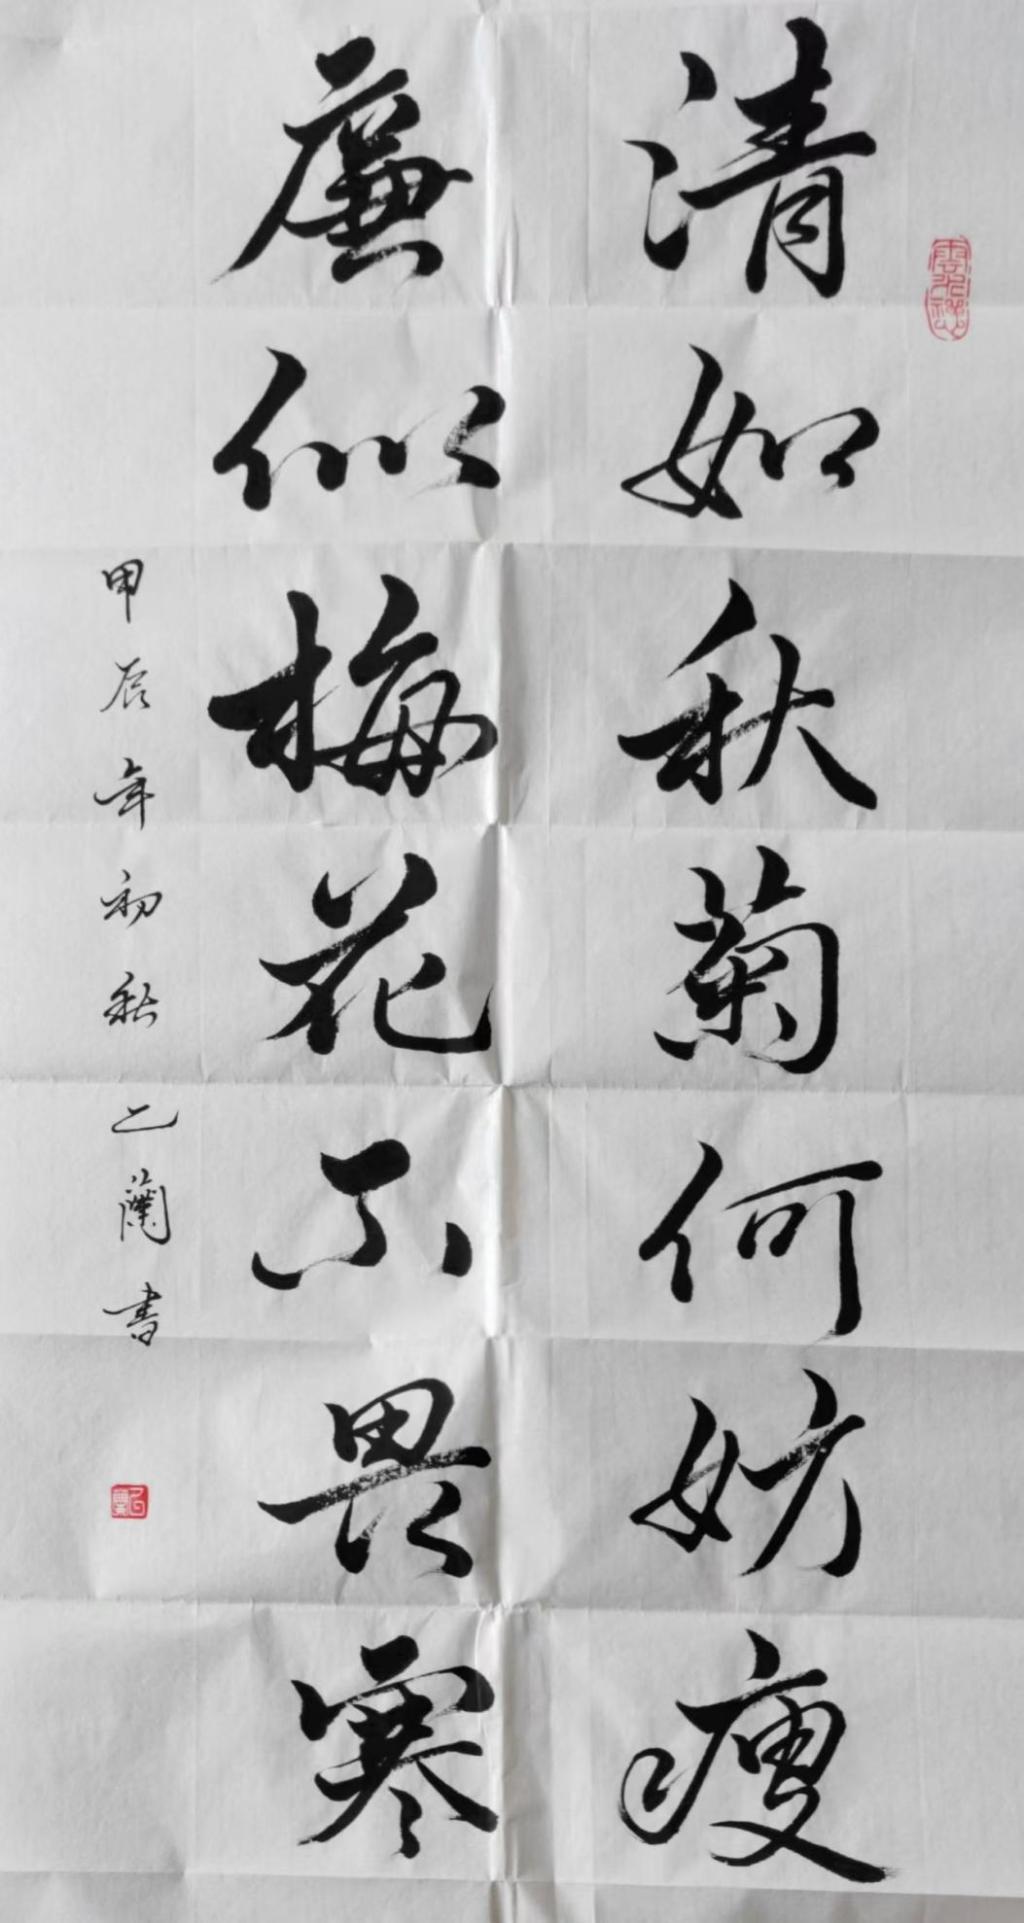 清如秋菊何妨瘦
廉似梅花不畏寒
甲辰年初秋乙蘭书